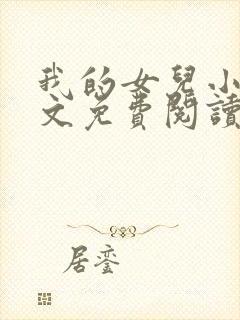 我的女兒小
文免費閱讀
居鸾